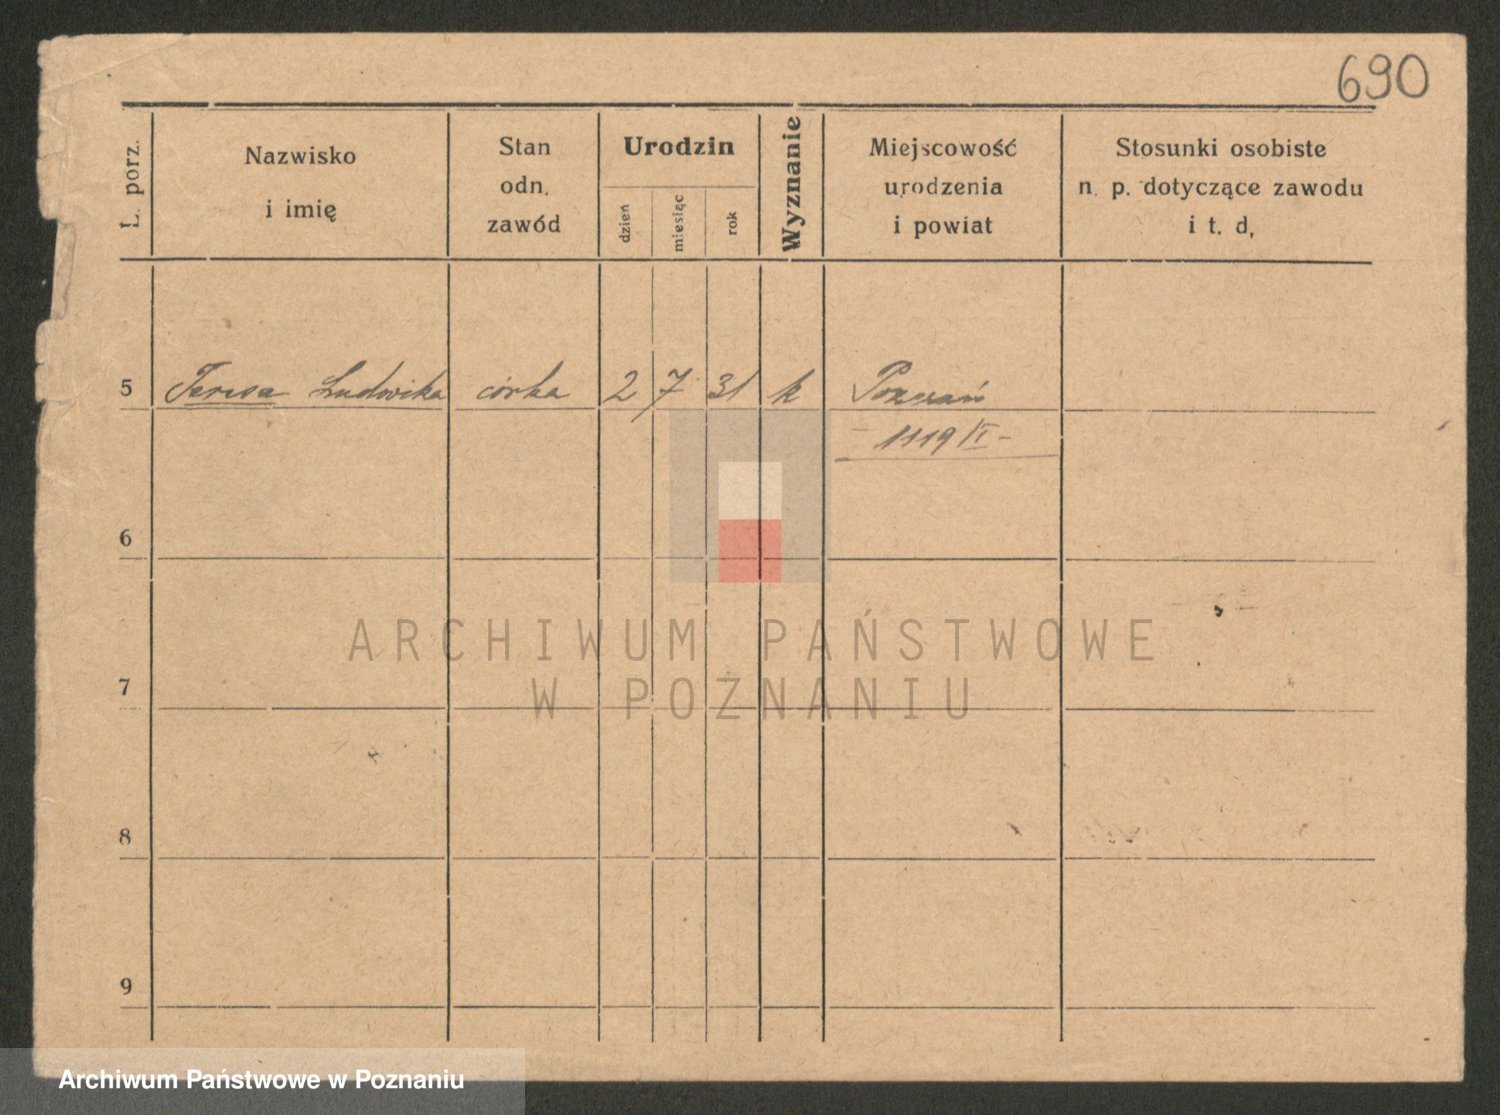 690
L. porz.
Nazwisko
i imię
Stan
odn.
zawód
Urodzin
dzień
miesiąc
rok
Wyznanie
Miejscowość
urodzenia
i powiat
Stosunki osobiste
n. p. dotyczące zawodu
i t. d,
5 Teresa Ludovika córka 2 7 31 k Poznań
- 1119/I -
6
7
8
9
ARCHIWUM PAŃSTWOWE
W POZNANIU
Archiwum Państwowe w Poznaniu